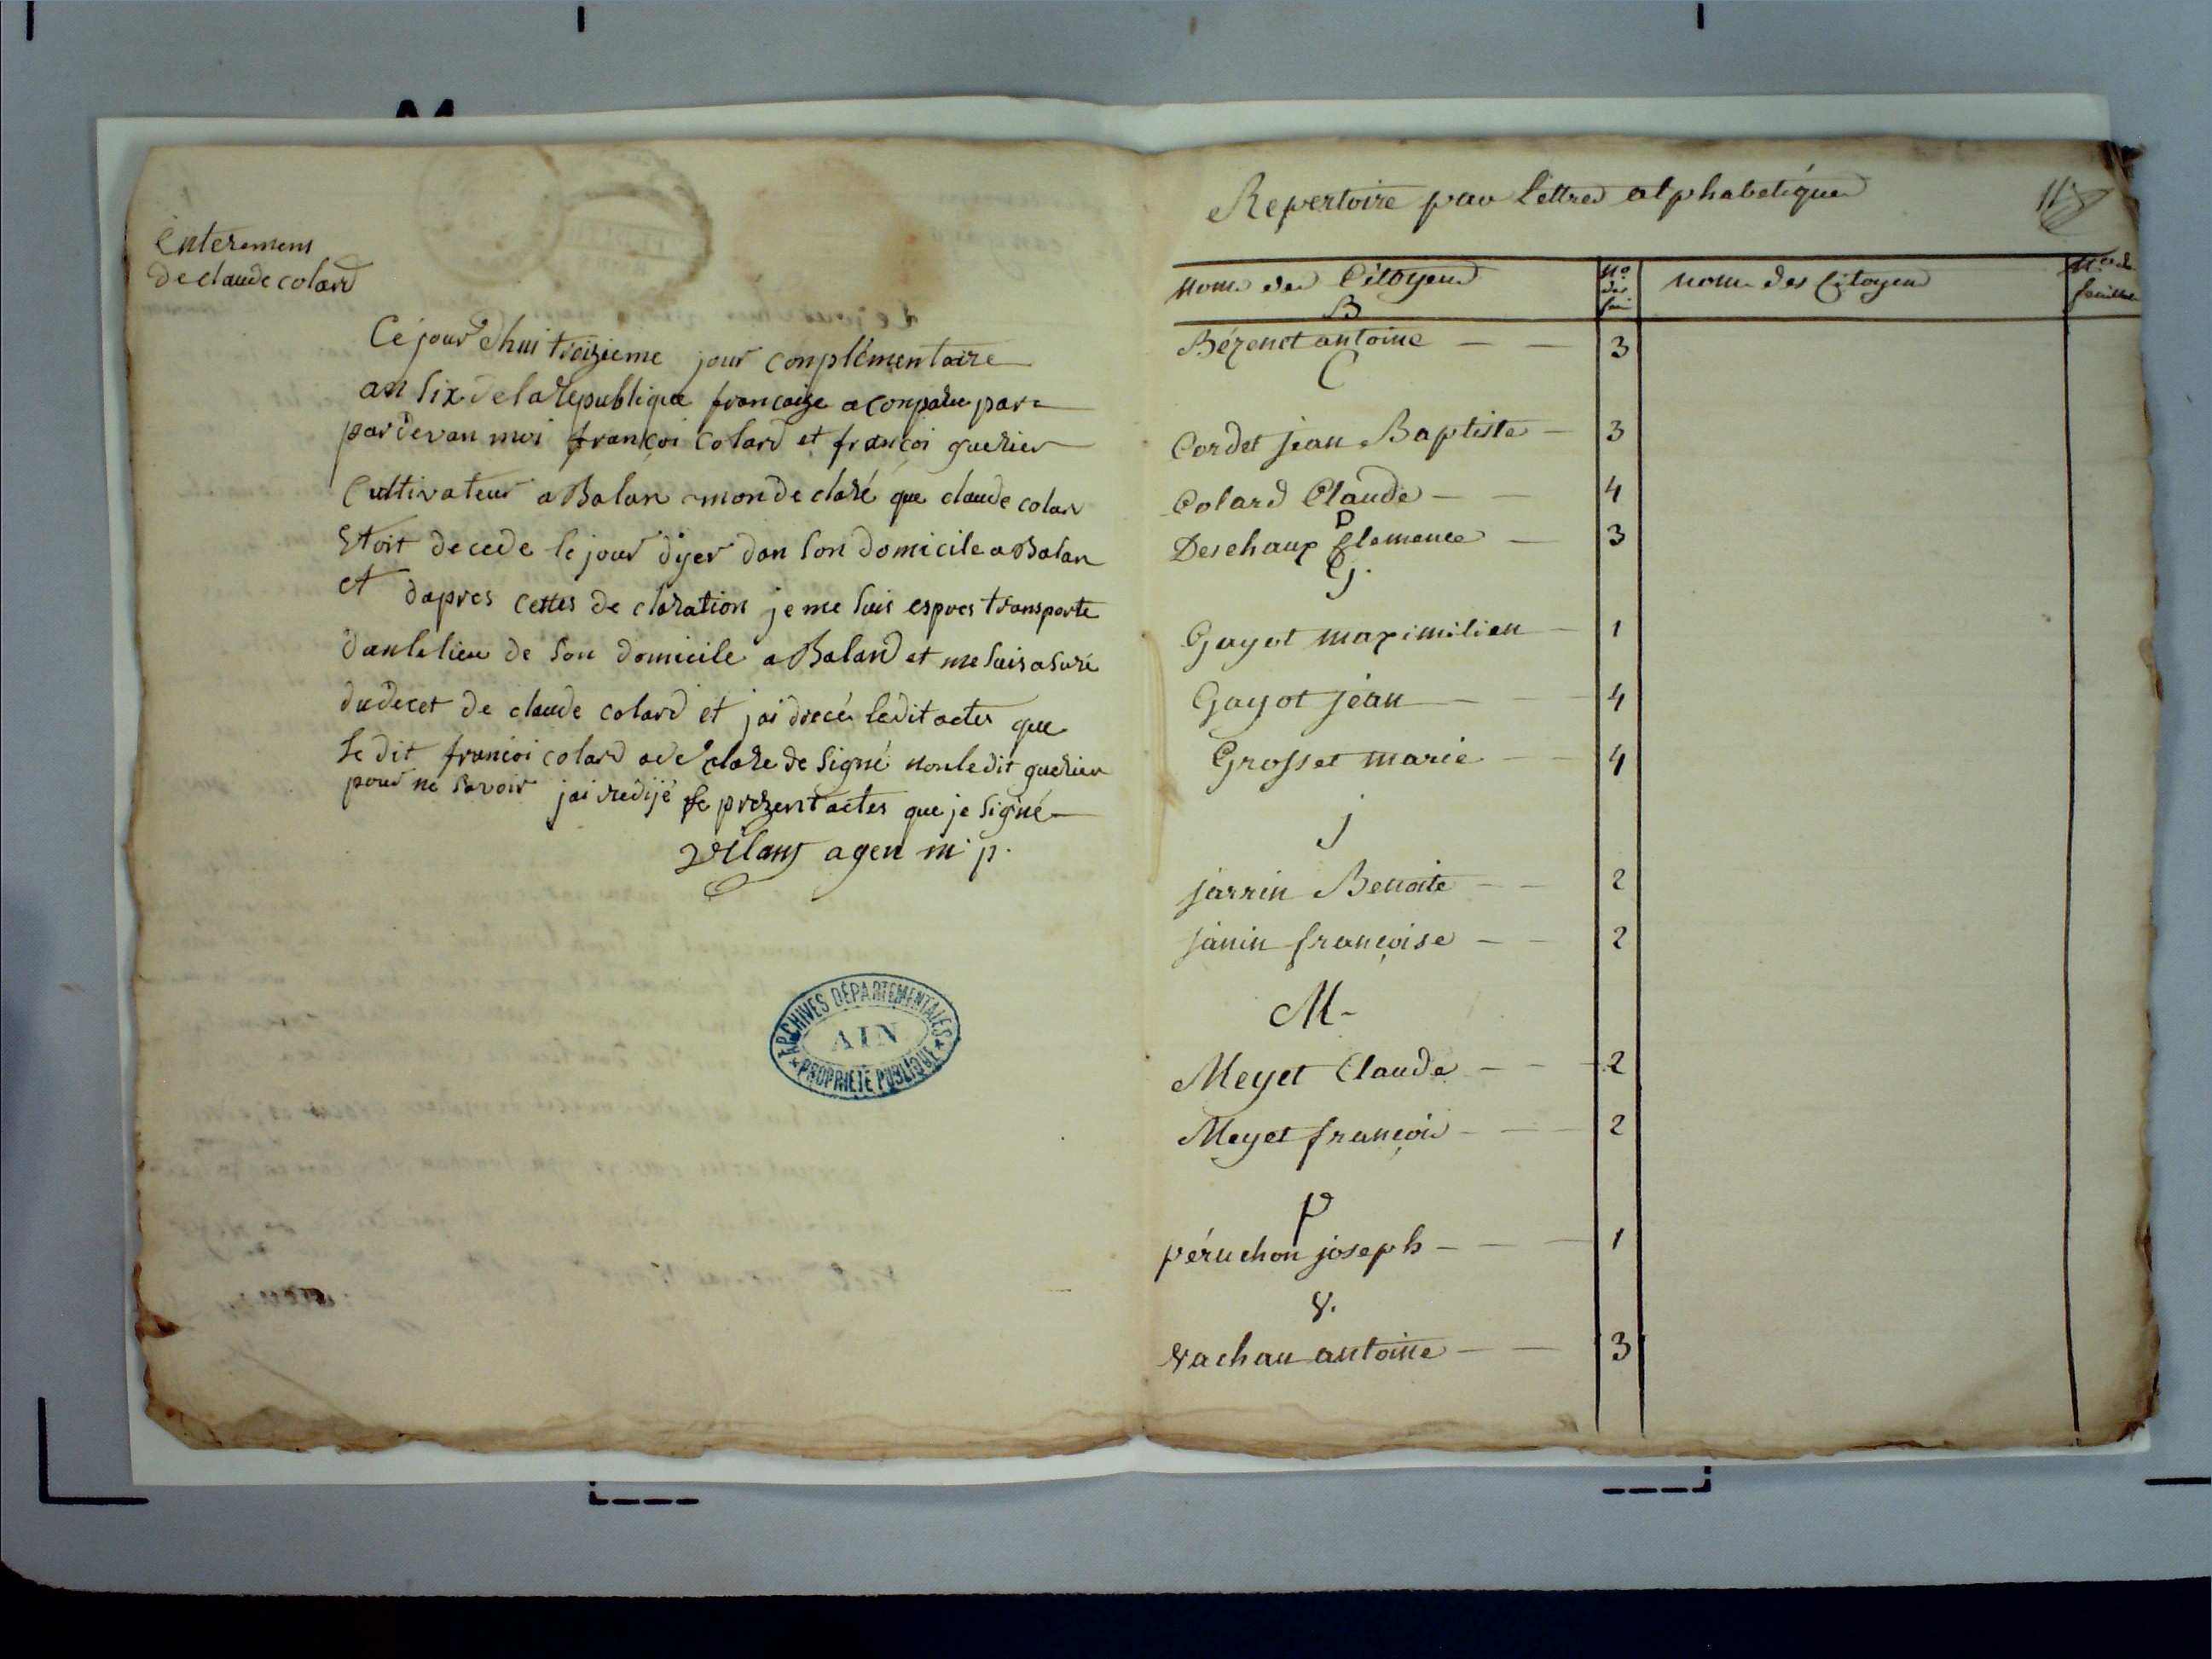 Enterement
de claude colard
Ce jour d'hui troizieme jour conplémentaire
an six de la republique francoize a conparu par=
par devan moi françoi colard et françoi guerier
Cultivateur a Balan mon de claré que claude colar
Etoit decede le jour d'yer dan son domicile a Balan
et dapres cettes de claration je me suis espres transporte
dan le lieu de son domicile a Baland et me suis asuré
du decet de claude colard et jai drecé ledit actes que
le dit francoi colard a de clare de signé non le dit guerier
pour ne savoir jai redijé le prezent actes que je signé
agen m. p.
ARCHIVES DÉPARTEMENTALES
AIN
PROPRIÉTÉ PUBLIQUE
Repertoire par lettres alphabetiques
nom des Citoyens
No
des
nom des Citoyens
No de
feuillet
B
Bézenet antoine — — 3
C
Cordet jean Baptiste — 3
Colard Claude — — 4
D
Deschaux Clemence — 3
G.
Gayot maximilien — 1
Gayot jean — — 4
Grosset marie — — 4
J
jarrin Benoite — — 2
janin françoise — — 2
M-
Meyet Claude — — 2
Meyet françois — — 2
P
péruchon joseph — — — 1
V.
vachau antoine — — 3